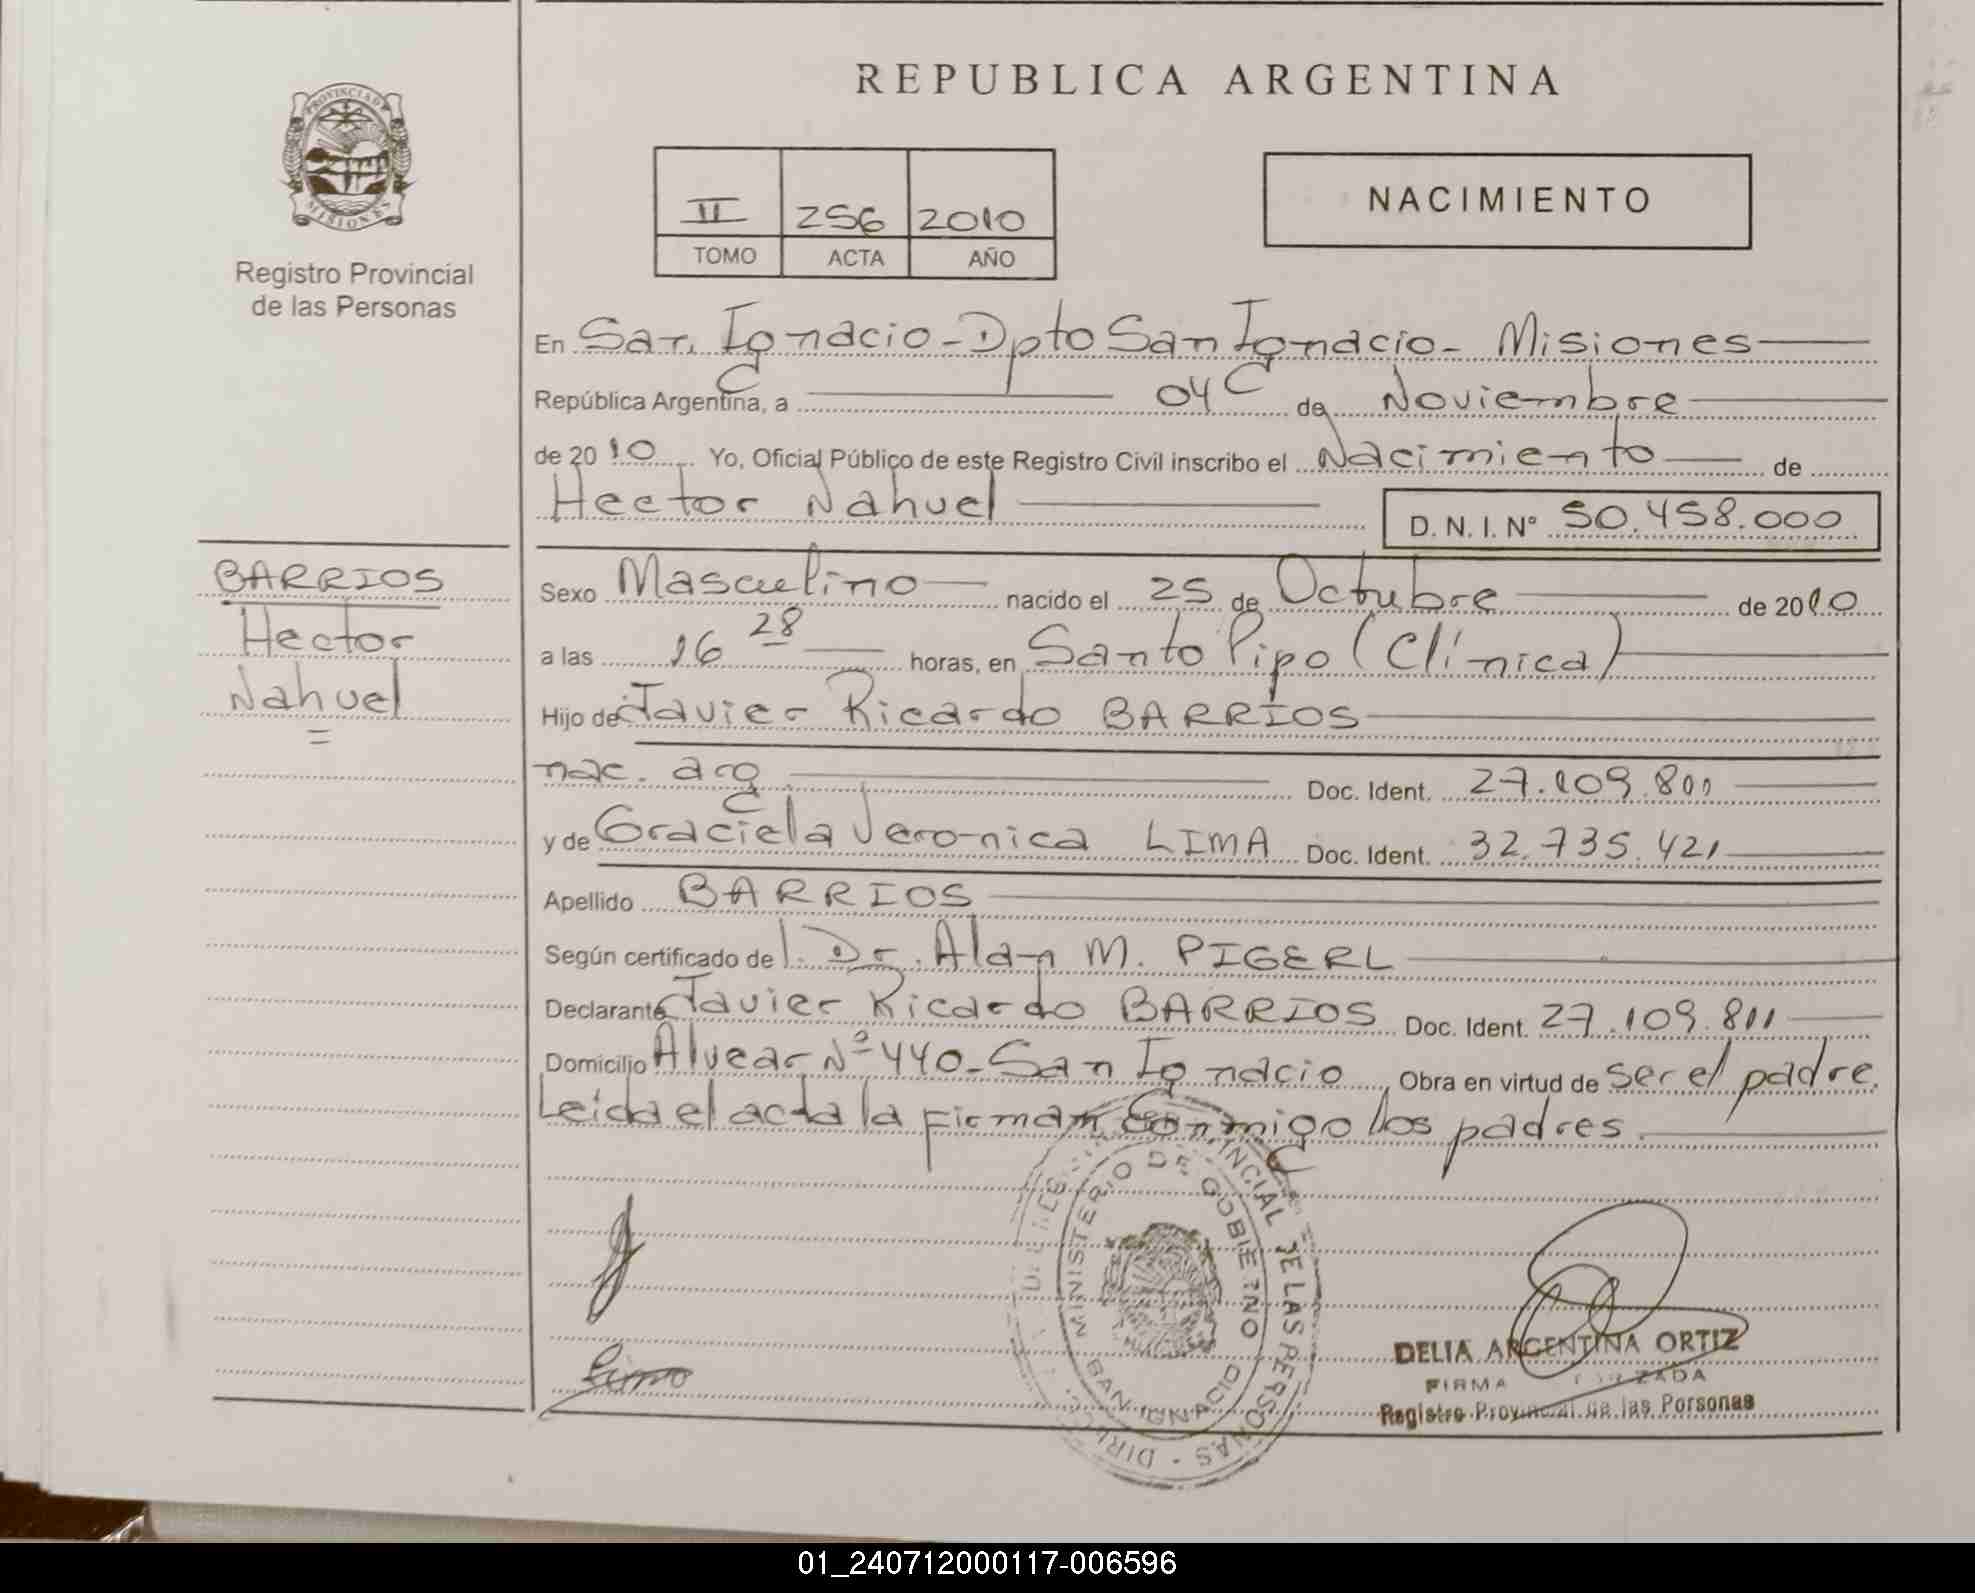 PROVINCIA DE
MISIONES
Registro Provincial
de las Personas
BARRIOS
Hector
Nahuel
=
REPUBLICA ARGENTINA
II 256 2010
TOMO ACTA AÑO
NACIMIENTO
En San Ignacio - Dpto San Ignacio - Misiones
República Argentina, a 04 de Noviembre
de 2010 Yo, Oficial Público de este Registro Civil inscribo el Nacimiento de
Hector Nahuel D. N. I. N° 50.458.000
Sexo Masculino nacido el 25 de Octubre de 2010
a las 16 28 horas, en Santo Pipo (Clínica)
Hijo de Javier Ricardo BARRIOS
nac. arg Doc. Ident. 27.109.811
y de Graciela Veronica LIMA Doc. Ident. 32.735.421
Apellido BARRIOS
Según certificado del Dr. Alan M. PIGERL
Declarante Javier Ricardo BARRIOS Doc. Ident. 27.109.811
Domicilio Alvear Nº 440 - San Ignacio Obra en virtud de ser el padre.
Leida el acta la firman conmigo los padres.
MINISTERIO DE GOBIERNO
SAN IGNACIO
PROVINCIAL DE LAS PERSONAS
DELIA ARGENTINA ORTIZ
FIRMA
Registro Provincial de las Personas
01_240712000117-006596